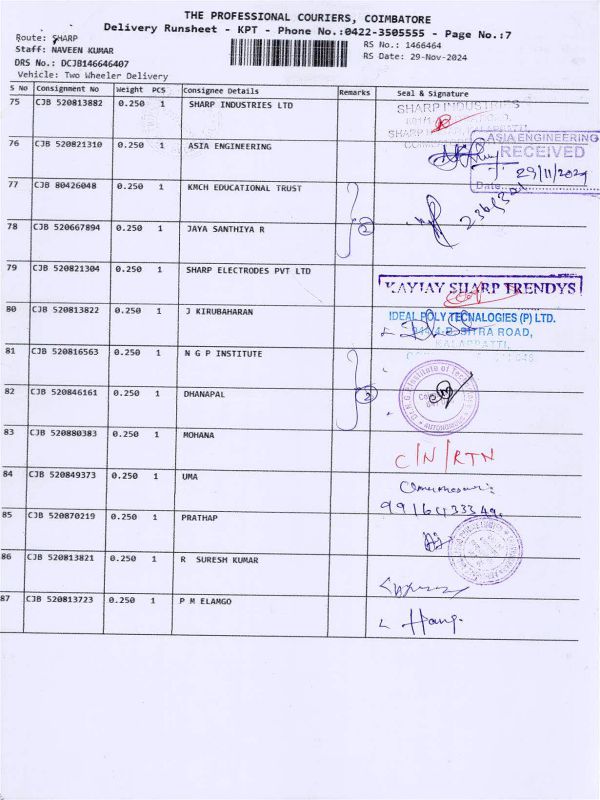 THE PROFESSIONAL COURIERS, COIMBATORE
Delivery Runsheet - KPT - Phone No.:0422-3505555 - Page No.:7
Route: SHARP
RS No.: 1466464
Staff: NAVEEN KUMAR
RS Date: 29-Nov-2024
DRS No.: DCJB146646407
Vehicle: Two Wheeler Delivery
S No Consignment No Weight PCS Consignee Details Remarks Seal & Signature
75 CJB 520813882 0.250 1 SHARP INDUSTRIES LTD
SHARP INDUSTRIES
76 CJB 520821310 0.250 1 ASIA ENGINEERING
ASIA ENGINEERING
RECEIVED
29/11/2024
Date
77 CJB 80426048 0.250 1 KMCH EDUCATIONAL TRUST
2
78 CJB 520667894 0.250 1 JAYA SANTHIYA R
79 CJB 520821304 0.250 1 SHARP ELECTRODES PVT LTD
KAYJAY SHARP TRENDYS
80 CJB 520813822 0.250 1 J KIRUBAHARAN
IDEAL POLY TECNALOGIES (P) LTD.
SITRA ROAD,
KALAPPATTI,
81 CJB 520816563 0.250 1 N G P INSTITUTE
2
82 CJB 520846161 0.250 1 DHANAPAL
83 CJB 520880383 0.250 1 MOHANA
C/N/RTN
84 CJB 520849373 0.250 1 UMA
85 CJB 520870219 0.250 1 PRATHAP
86 CJB 520813821 0.250 1 R SURESH KUMAR
87 CJB 520813723 0.250 1 P M ELAMGO